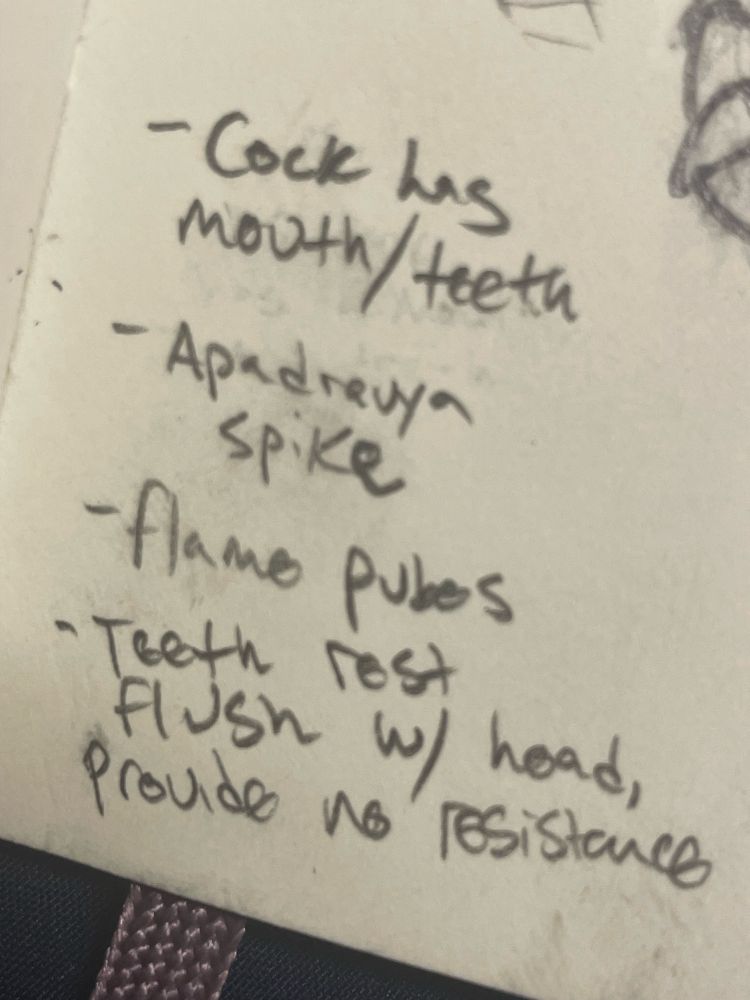 - Cock has
mouth/teeth
- Apadravya
spike
- flame pubes
- Teeth rest
flush w/ head,
provide no resistance